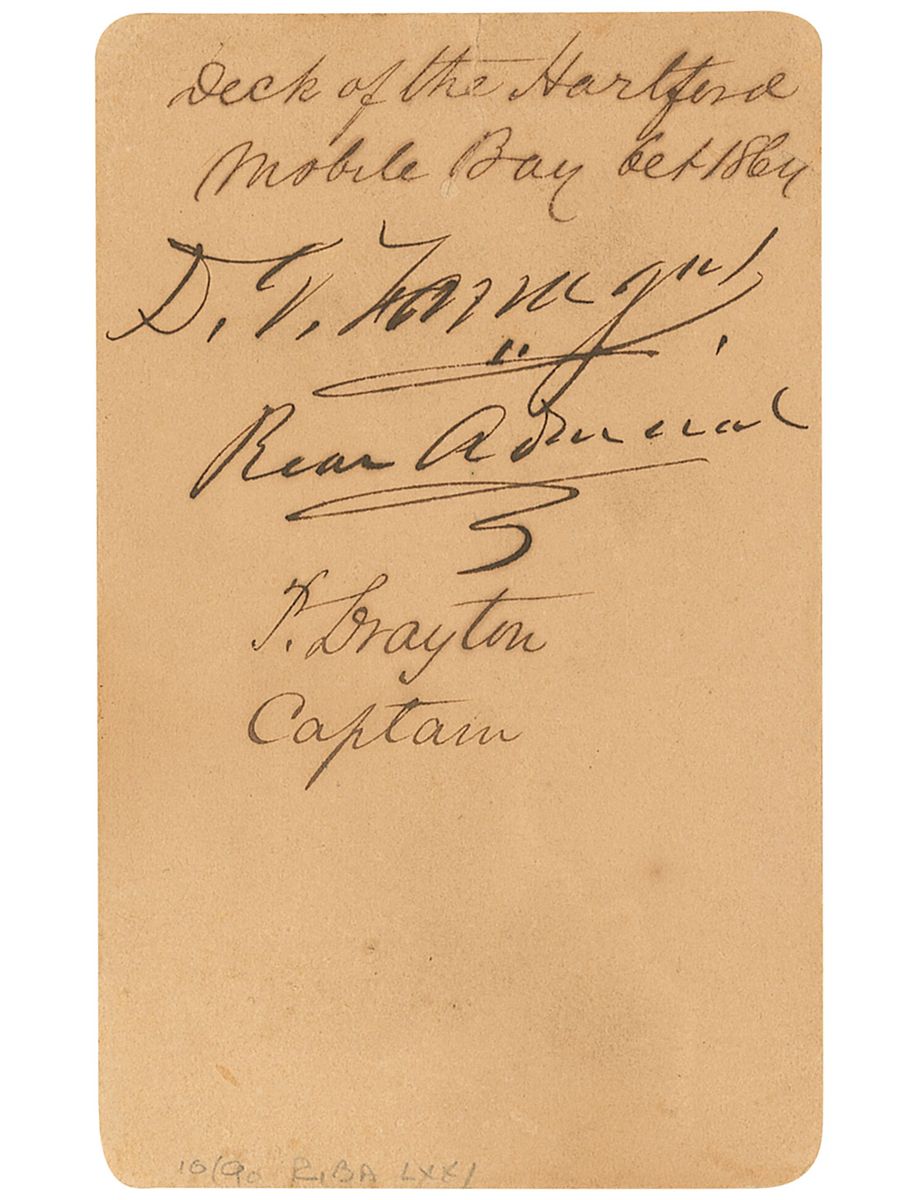 Deck of the Hartford
Mobile Bay Oct 1864
D. G. Farragut
Rear Admiral
P. Drayton
Captain
10/90 RIBA LXXI